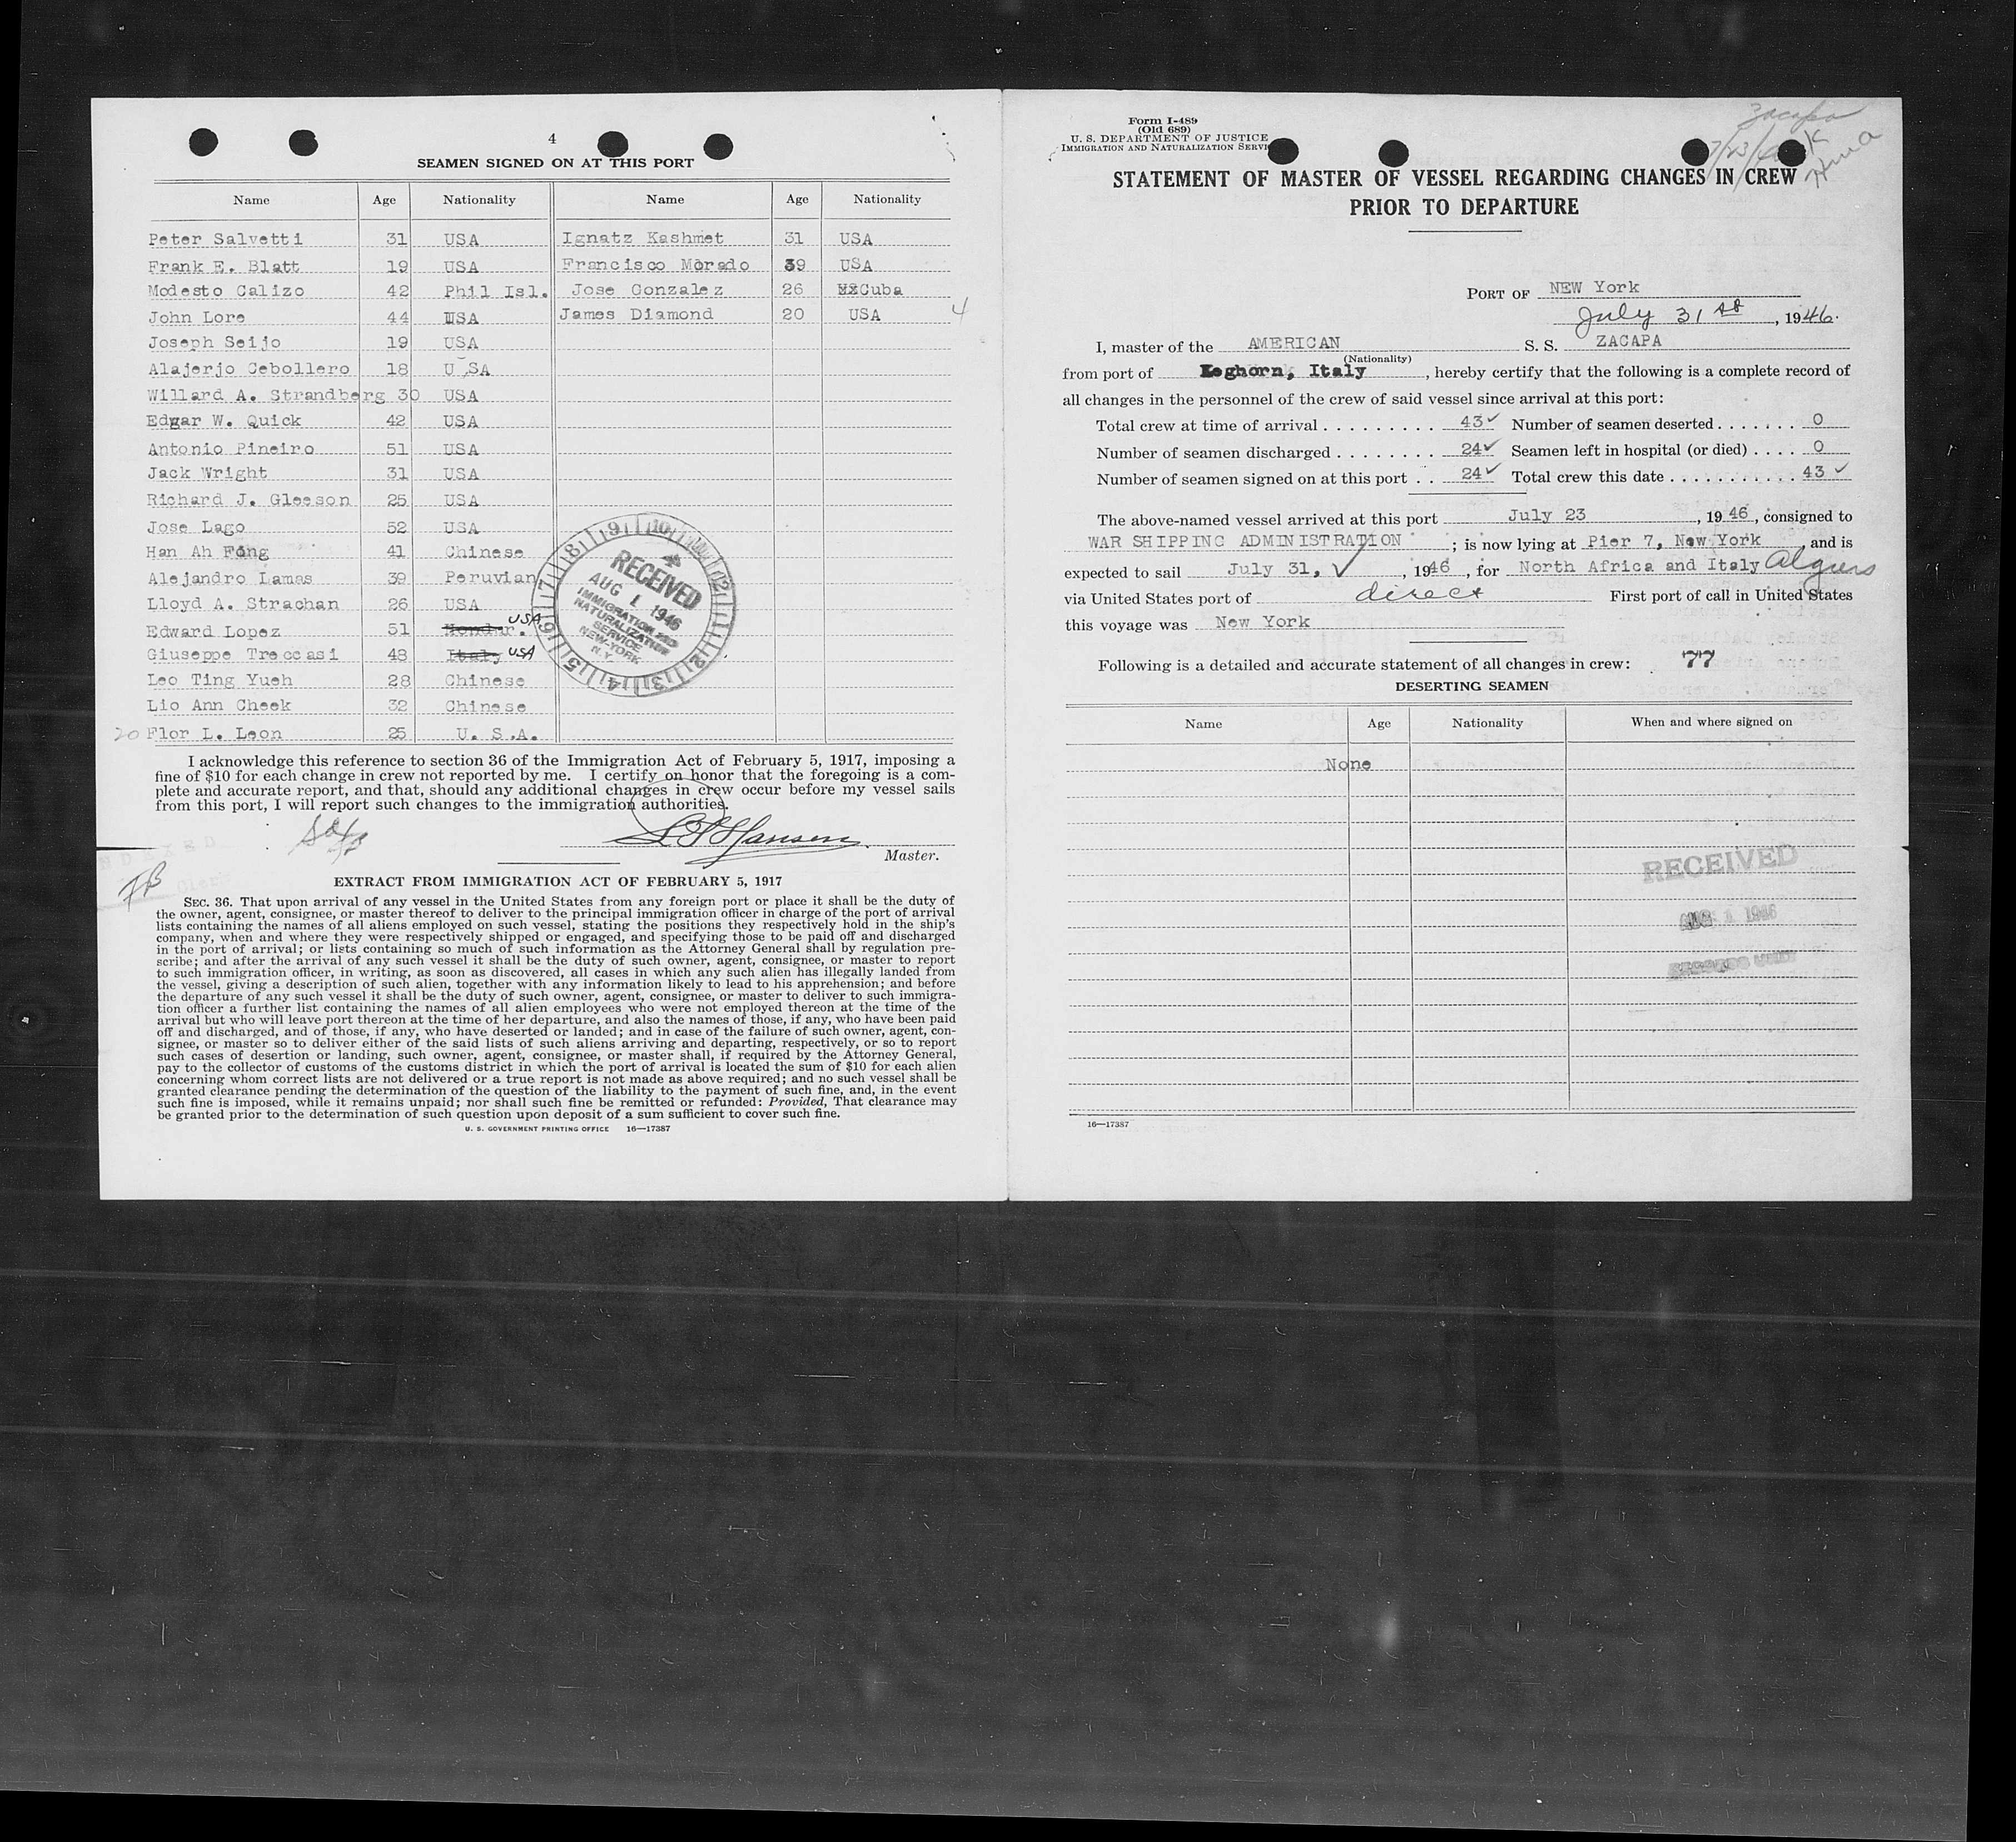 4
SEAMEN SIGNED ON AT THIS PORT
Name Age Nationality Name Age Nationality
Peter Salvetti 31 USA Ignatz Kashmet 31 USA
Frank E. Blatt 19 USA Francisco Morado 39 USA
Modesto Calizo 42 Phil Isl. Jose Gonzalez 26 Cuba
John Lore 44 USA James Diamond 20 USA 4
Joseph Seijo 19 USA
Alajerjo Cebollero 18 U.SA
Willard A. Strandberg 30 USA
Edgar W. Quick 42 USA
Antonio Pineiro 51 USA
Jack Wright 31 USA
Richard J. Gleeson 25 USA
Jose Lago 52 USA
Han Ah Fong 41 Chinese
Alejandro Lamas 39 Peruvian
Lloyd A. Strachan 26 USA
Edward Lopez 51 Hondur. USA
Giuseppe Treccasi 48 Italy USA
Leo Ting Yueh 28 Chinese
Lio Ann Cheek 32 Chinese
20 Flor L. Leon 25 U. S.A.
RECEIVED
AUG 1 1946
IMMIGRATION AND
NATURALIZATION
SERVICE
NEW-YORK
N.Y.
I acknowledge this reference to section 36 of the Immigration Act of February 5, 1917, imposing a
fine of $10 for each change in crew not reported by me. I certify on honor that the foregoing is a com-
plete and accurate report, and that, should any additional changes in crew occur before my vessel sails
from this port, I will report such changes to the immigration authorities.
Hansen
Master.
EXTRACT FROM IMMIGRATION ACT OF FEBRUARY 5, 1917
SEC. 36. That upon arrival of any vessel in the United States from any foreign port or place it shall be the duty of
the owner, agent, consignee, or master thereof to deliver to the principal immigration officer in charge of the port of arrival
lists containing the names of all aliens employed on such vessel, stating the positions they respectively hold in the ship's
company, when and where they were respectively shipped or engaged, and specifying those to be paid off and discharged
in the port of arrival; or lists containing so much of such information as the Attorney General shall by regulation pre-
scribe; and after the arrival of any such vessel it shall be the duty of such owner, agent, consignee, or master to report
to such immigration officer, in writing, as soon as discovered, all cases in which any such alien has illegally landed from
the vessel, giving a description of such alien, together with any information likely to lead to his apprehension; and before
the departure of any such vessel it shall be the duty of such owner, agent, consignee, or master to deliver to such immigra-
tion officer a further list containing the names of all alien employees who were not employed thereon at the time of the
arrival but who will leave port thereon at the time of her departure, and also the names of those, if any, who have been paid
off and discharged, and of those, if any, who have deserted or landed; and in case of the failure of such owner, agent, con-
signee, or master so to deliver either of the said lists of such aliens arriving and departing, respectively, or so to report
such cases of desertion or landing, such owner, agent, consignee, or master shall, if required by the Attorney General,
pay to the collector of customs of the customs district in which the port of arrival is located the sum of $10 for each alien
concerning whom correct lists are not delivered or a true report is not made as above required; and no such vessel shall be
granted clearance pending the determination of the question of the liability to the payment of such fine, and, in the event
such fine is imposed, while it remains unpaid; nor shall such fine be remitted or refunded: Provided, That clearance may
be granted prior to the determination of such question upon deposit of a sum sufficient to cover such fine.
U. S. GOVERNMENT PRINTING OFFICE 16—17387
Form I-489
(Old 689)
U. S. DEPARTMENT OF JUSTICE
IMMIGRATION AND NATURALIZATION SERVI
Zacapa
STATEMENT OF MASTER OF VESSEL REGARDING CHANGES IN CREW
PRIOR TO DEPARTURE
PORT OF NEW York
July 31 st, 1946.
I, master of the AMERICAN S. S. ZACAPA
(Nationality)
from port of Leghorn, Italy, hereby certify that the following is a complete record of
all changes in the personnel of the crew of said vessel since arrival at this port:
Total crew at time of arrival . . . . . . . . . 43 ✓ Number of seamen deserted . . . . . . . 0
Number of seamen discharged . . . . . . . . 24 ✓ Seamen left in hospital (or died) . . . . 0
Number of seamen signed on at this port . . 24 ✓ Total crew this date . . . . . . . . . . . 43 ✓
The above-named vessel arrived at this port July 23, 19 46, consigned to
WAR SHIPPING ADMINISTRATION; is now lying at Pier 7, New York, and is
expected to sail July 31, ✓, 1946, for North Africa and Italy Algiers
via United States port of direct First port of call in United States
this voyage was New York
Following is a detailed and accurate statement of all changes in crew: 77
DESERTING SEAMEN
Name Age Nationality When and where signed on
None
RECEIVED
AUG 1 1946
RECORDS UNIT
16—17387